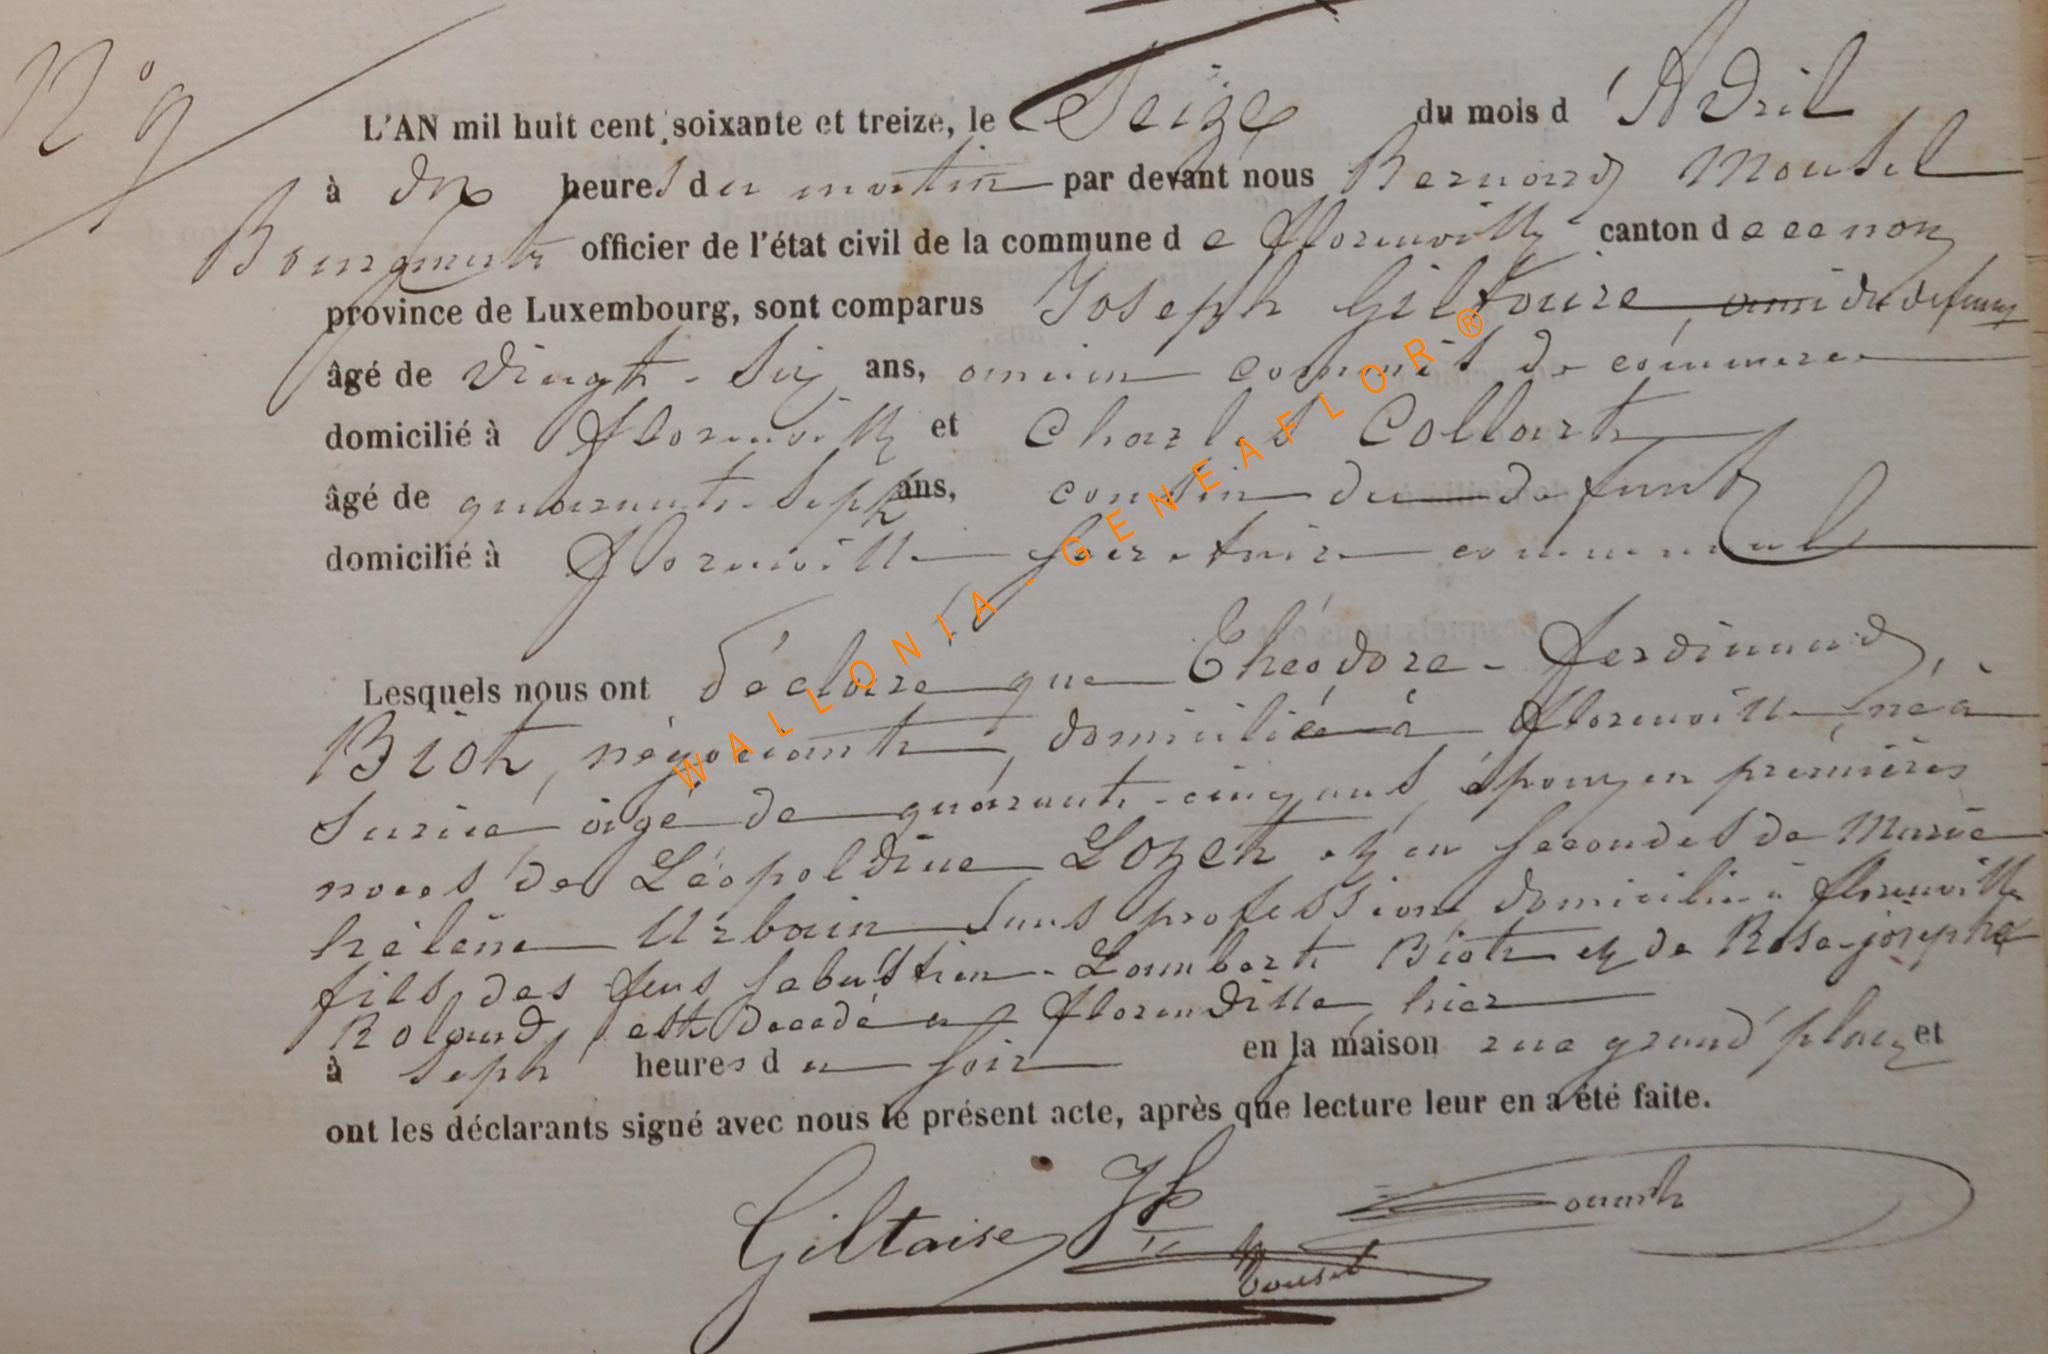 N° 9
L'AN mil huit cent soixante et treize, le Seize du mois d'Avril
à dix heures du matin par devant nous Bernard Mousel
Bourgmestre officier de l'état civil de la commune de florenville canton de
province de Luxembourg, sont comparus Joseph Giltaire ami du defunt
âgé de vingt-six ans, commis de commerce
domicilié à florenville et Charles Collart
âgé de quarante-sept ans, cousin du defunt
domicilié à florenville secretaire communal
Lesquels nous ont déclaré que Théodore-ferdinand
Biot, négociant, domicilié à florenville, né à
agé de quarante-cinq ans, époux en premières
noces de Léopoldine Lozet et en secondes de Marie
hélène Urbain sans profession domicilié à florenville
fils des feus Sebastien-Lambert Biot et de Rose-josephe
Roland, est decedé à florenville, hier
à Sept heures du soir en la maison rue grand'place et
ont les déclarants signé avec nous le présent acte, après que lecture leur en a été faite.
Giltaire Jh
Mousel
WALLONIA - GENEAFLOR®